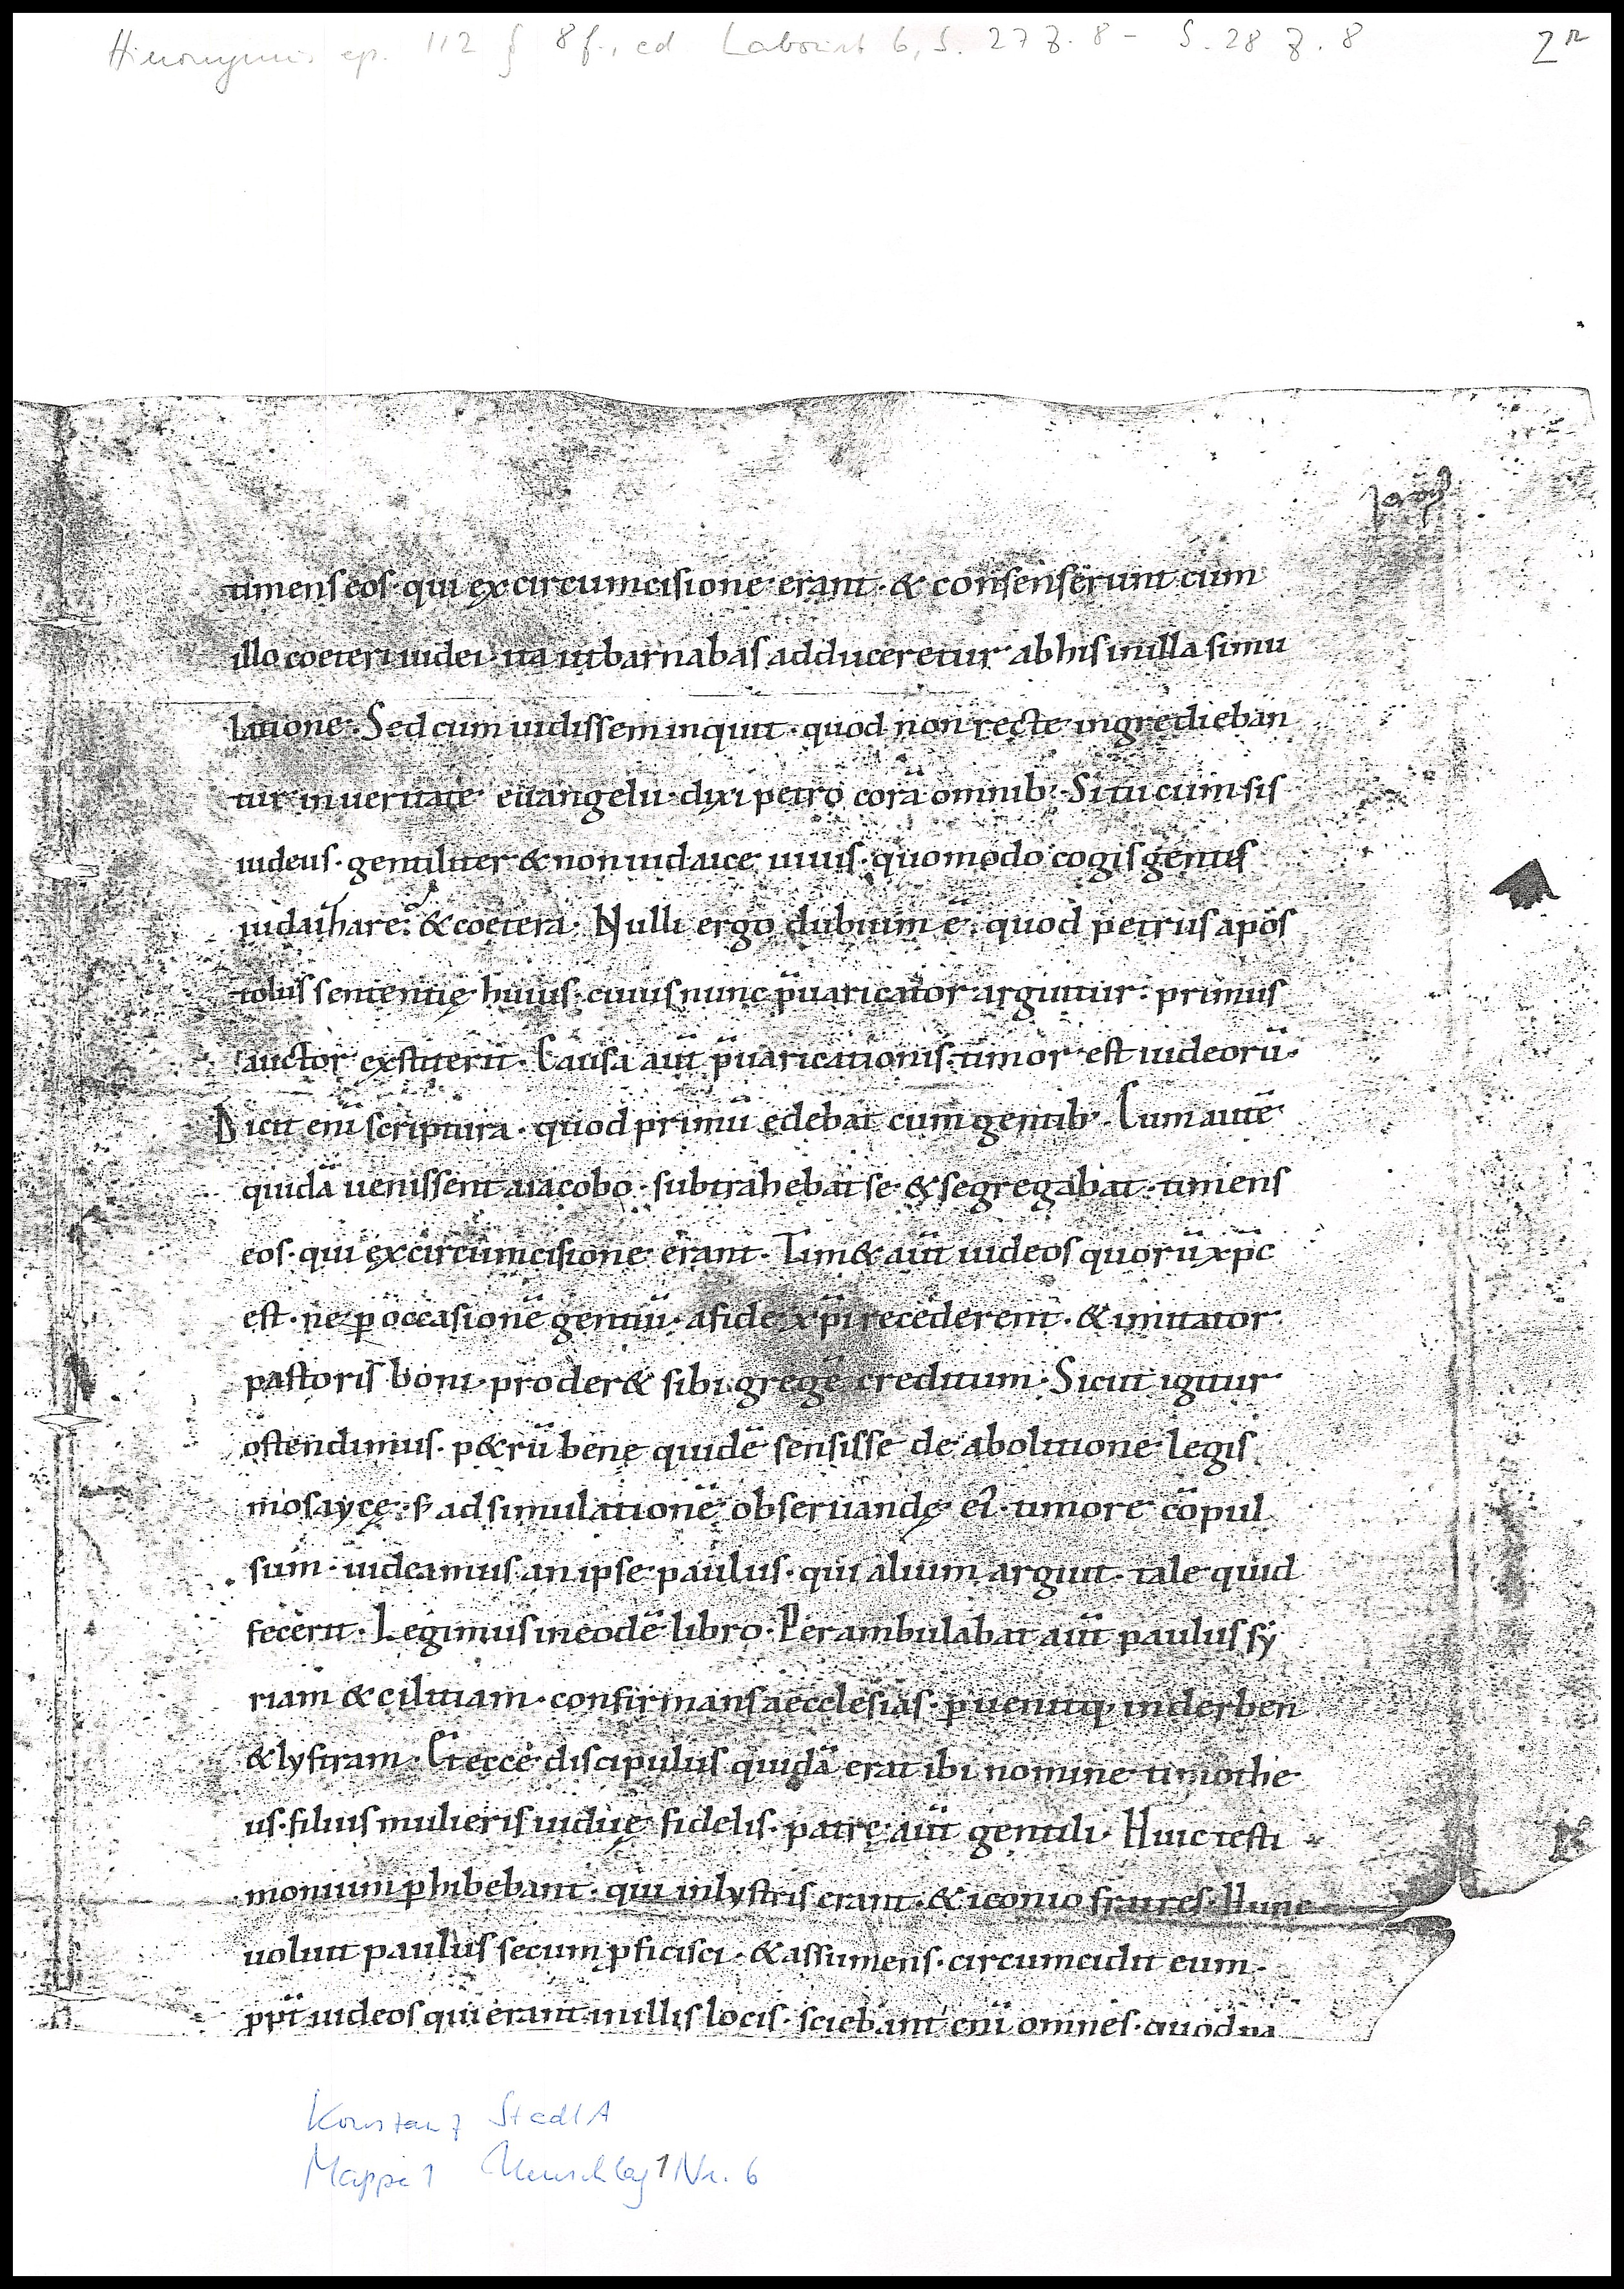 Hieronymus ep. 112 § 8f., ed. Labourt 6, S. 27 Z. 8 - S. 28 Z. 8 2r
timens eos· qui ex circumcisione erant· & consenserunt cum
illo coeteri iudei· ita ut barnabas adduceretur ab his in illa simu
latione· Sed cum uidissem inquit· quod non recte ingredieban
tur in ueritate euangelii· dixi petro corā omnib:· Si tu cum sis
iudeus· gentiliter & non iudaice uiuis· quomodo cogis gentes
iudaihare? & coetera· Nulli ergo dubium ē· quod petrus apos
tolus sententię huius· cuius nunc p̄uaricator arguitur· primus
auctor exstiterit· Causa aūt p̄uaricationis timor est iudeorū·
Dicit enī scriptura· quod primū edebat cum gentib· Cum autē
quidā uenissent a iacobo· subtrahebat se & segregabat· timens
eos· qui ex circumcisione erant· Tim& aūt iudeos quorū xp̄c
est· ne ꝑ occasionē gentiū· a fide xp̄i recederent· & imitator
pastoris boni· proder& sibi gregē creditum· Sicut igitur
ostendimus· p&rū bene quidē sensisse de abolitione legis
mosaycę· s; ad simulationē obseruandę ei· timore cōpul
sum· uideamus an ipse paulus· qui alium arguit· tale quid
fecerit· Legimus in eodē libro· Perambulabat aūt paulus sy
riam & ciliciam· confirmans aecclesias· ꝑuenitq; in derben
& lystram· Et ecce discipulus quidā erat ibi nomine timothe
us· filius mulieris uiduę fidelis· patre aūt gentili· Huic testi
monium ꝑhibebant· qui in lystris erant· & iconio fratres· Hunc
uoluit paulus secum ꝓficisci· & assumens· circumcidit eum·
ppt̄ iudeos qui erant in illis locis· sciebant enī omnes· quod pa
Konstanz StadtA
Mappe 1 Umschlag 1 Nr. 6